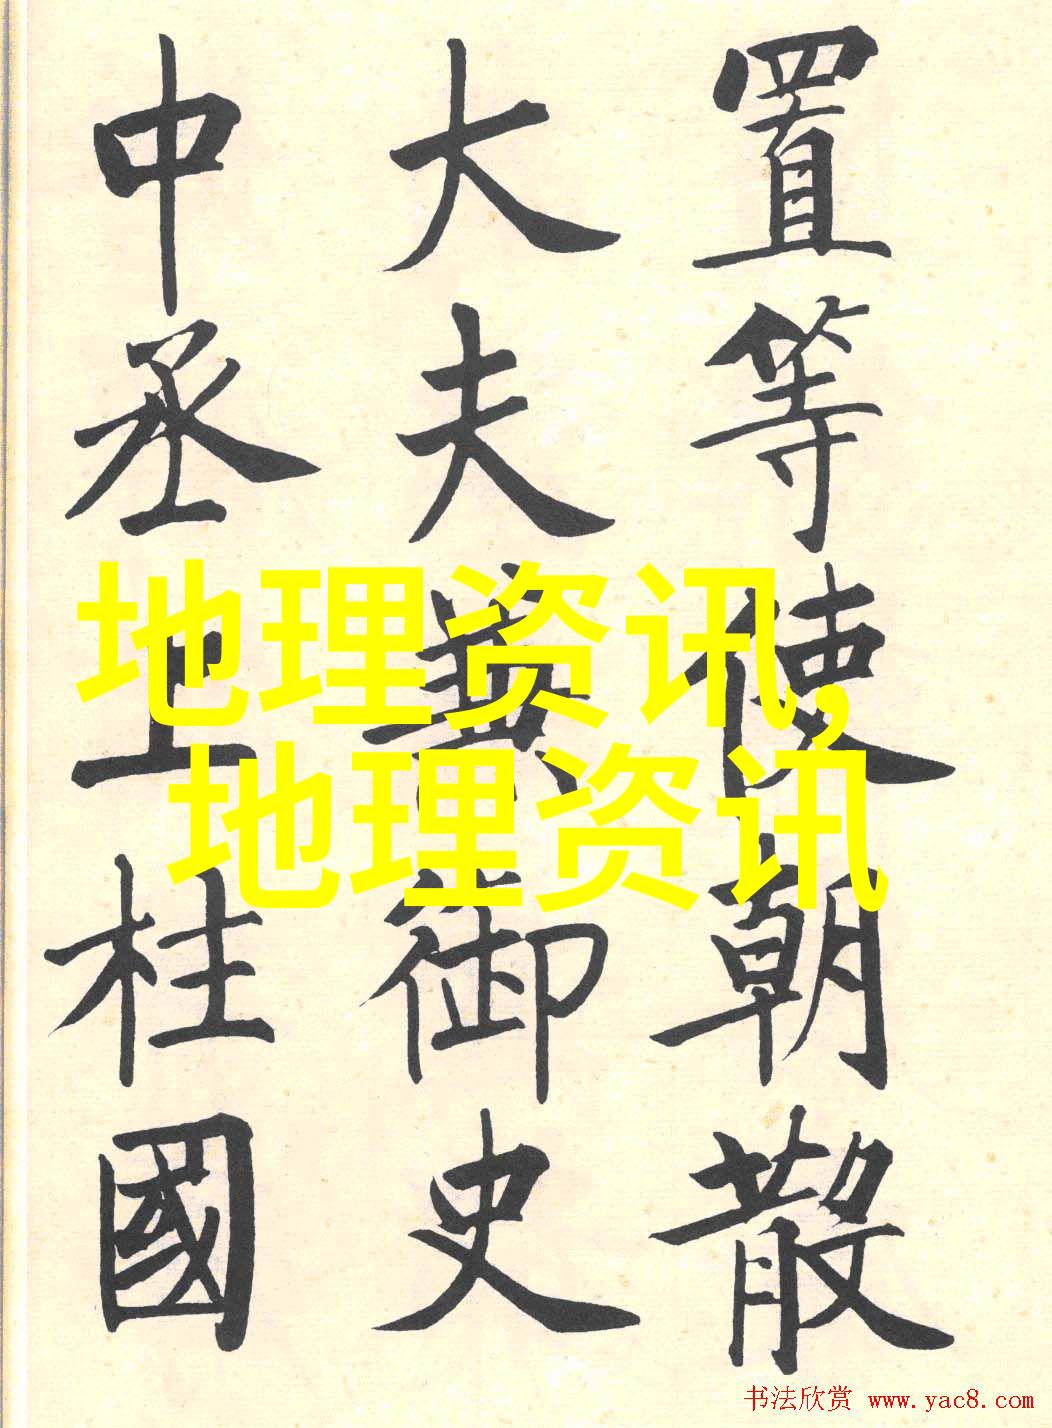 置等使朝散
大夫兼御史
中丞上柱國
地理资讯,
地理资讯
书法欣赏 www.yac8.com